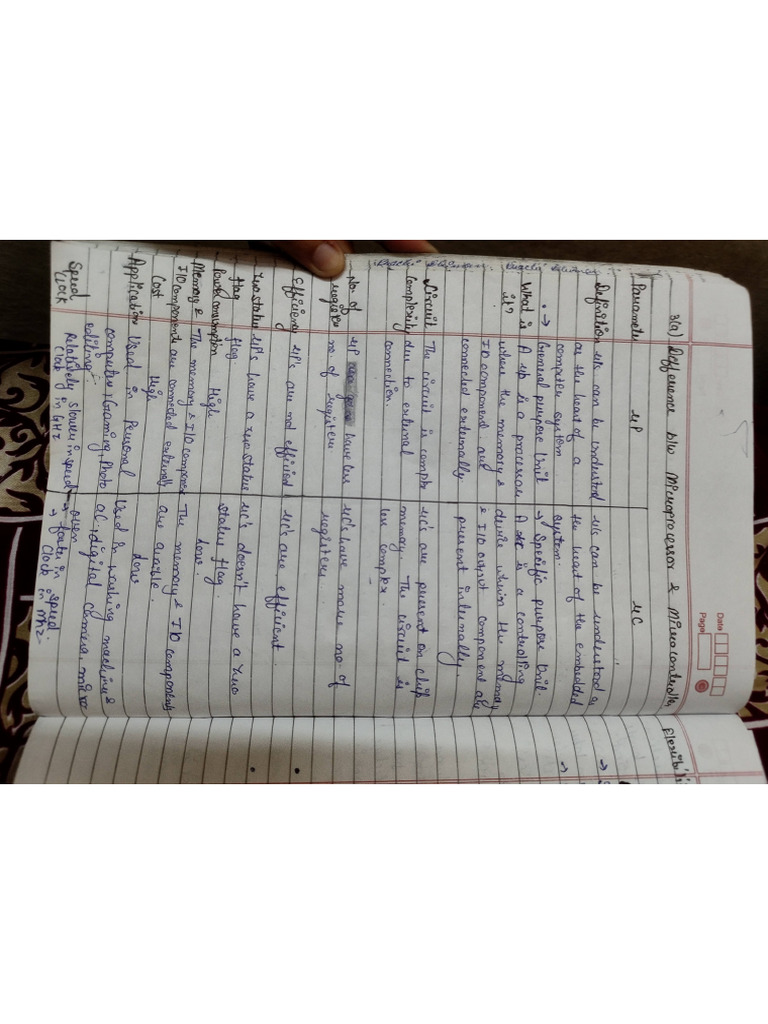 Date
Page
3(a) Difference b/w Microprocessor & Microcontroller
Parameter μP μC
Definition μPs can be understood μCs can be understood as
as the heart of a the heart of the embedded
computer system system.
→ General purpose Unit → Specific purpose Unit.
What is A μp is a processor A μc is a controlling
it? where the memory & device wherein the memory
I/O component and & I/O output component are
connected externally present internally.
Circuit The circuit is complex μC's are present on chip
Complexity due to external memory. The circuit is
connection. less complex.
No. of μP have less μC's have more no. of
register no. of registers registers.
Efficiency μP's are not efficient μC's are efficient.
Zero status μP's have a zero status μC's doesn't have a zero
flag flag status flag.
Power consumption High Low.
Memory & The memory & I/O component The memory & I/O components
I/O components are connected externally are
Cost High Low
Application Used in Personal Used in washing machine &
computers, Gaming, Photo AC, digital camera, micro
editing oven
Speed Relatively slower in speed → faster in speed.
Clock Clock in GHz Clock in MHz
Flexibili